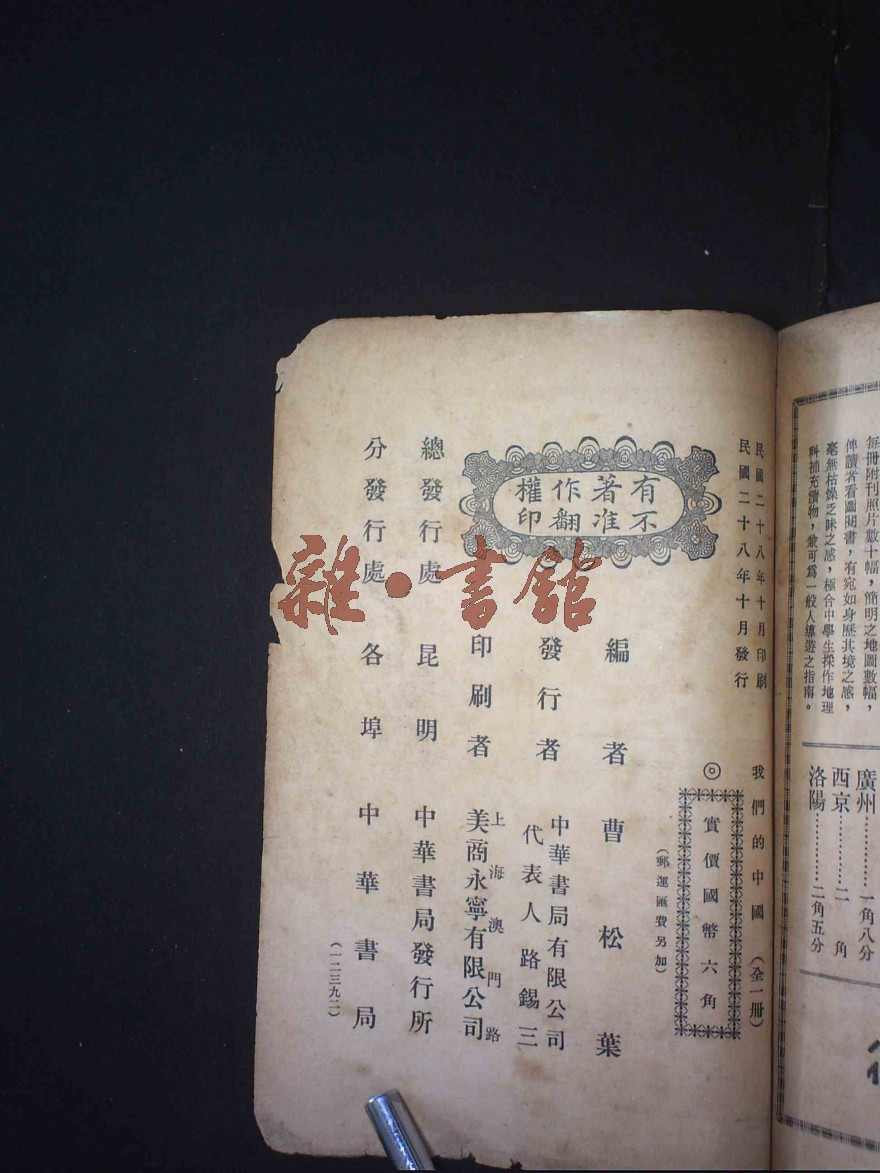 每冊附刊照片數十幅，簡明之地圖數幅，
俾讀者看圖閱書，有宛如身歷其境之感，
毫無枯燥乏味之感，極合中學生採作地理
科補充讀物，兼可爲一般人導遊之指南。
廣州………一角八分
西京………二　角
洛陽………二角五分
民國二十八年十月印刷
民國二十八年十月發行
我們的中國（全一冊）
◎實價國幣六角
（郵運匯費另加）
有著作權
不准翻印
編者 曹松葉
發行者 中華書局有限公司
代表人路錫三
印刷者 上海澳門路
美商永寧有限公司
總發行處 昆明 中華書局發行所
分發行處 各埠 中華書局
（一二三九二）
雜·書館